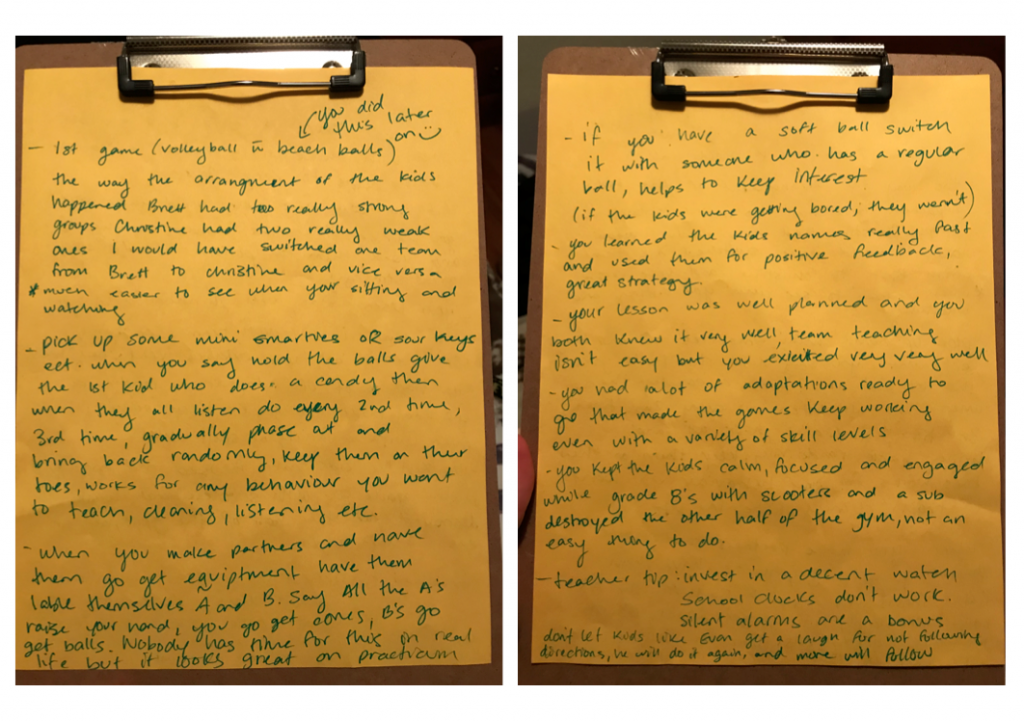 you did
this later
on
- 1st game (volleyball w̄ beach balls)
the way the arrangment of the kids
happened Brett had two really strong
groups Christine had two really weak
ones I would have switched one team
from Brett to christine and vice versa
* much easier to see when your sitting and
watching
- pick up some mini smarties OR sour keys
ect. when you say hold the balls give
the 1st kid who does a candy then
when they all listen do every 2nd time,
3rd time, gradually phase out and
bring back randomly, keep them on their
toes, works for any behaviour you want
to teach, cleaning, listening etc.
- when you make partners and have
them go get equiptment have them
lable themselves A and B. Say All the A's
raise your hand, you go get cones, B's go
get balls. Nobody has time for this in real
life but it looks great on practicum
- if you have a soft ball switch
it with someone who has a regular
ball, helps to keep interest
(if the kids were getting bored, they weren't)
- you learned the kids names really fast
and used them for positive feedback,
great strategy.
- your lesson was well planned and you
both knew it very well, team teaching
isn't easy but you exicuted very very well
- you had alot of adaptations ready to
go that made the games keep working
even with a variety of skill levels
- you kept the kids calm, focused and engaged
while grade 8's with scooters and a sub
destroyed the other half of the gym, not an
easy thing to do.
- teacher tip: invest in a decent watch
School clocks don't work.
Silent alarms are a bonus
don't let kids like Evan get a laugh for not following
directions, he will do it again, and more will follow